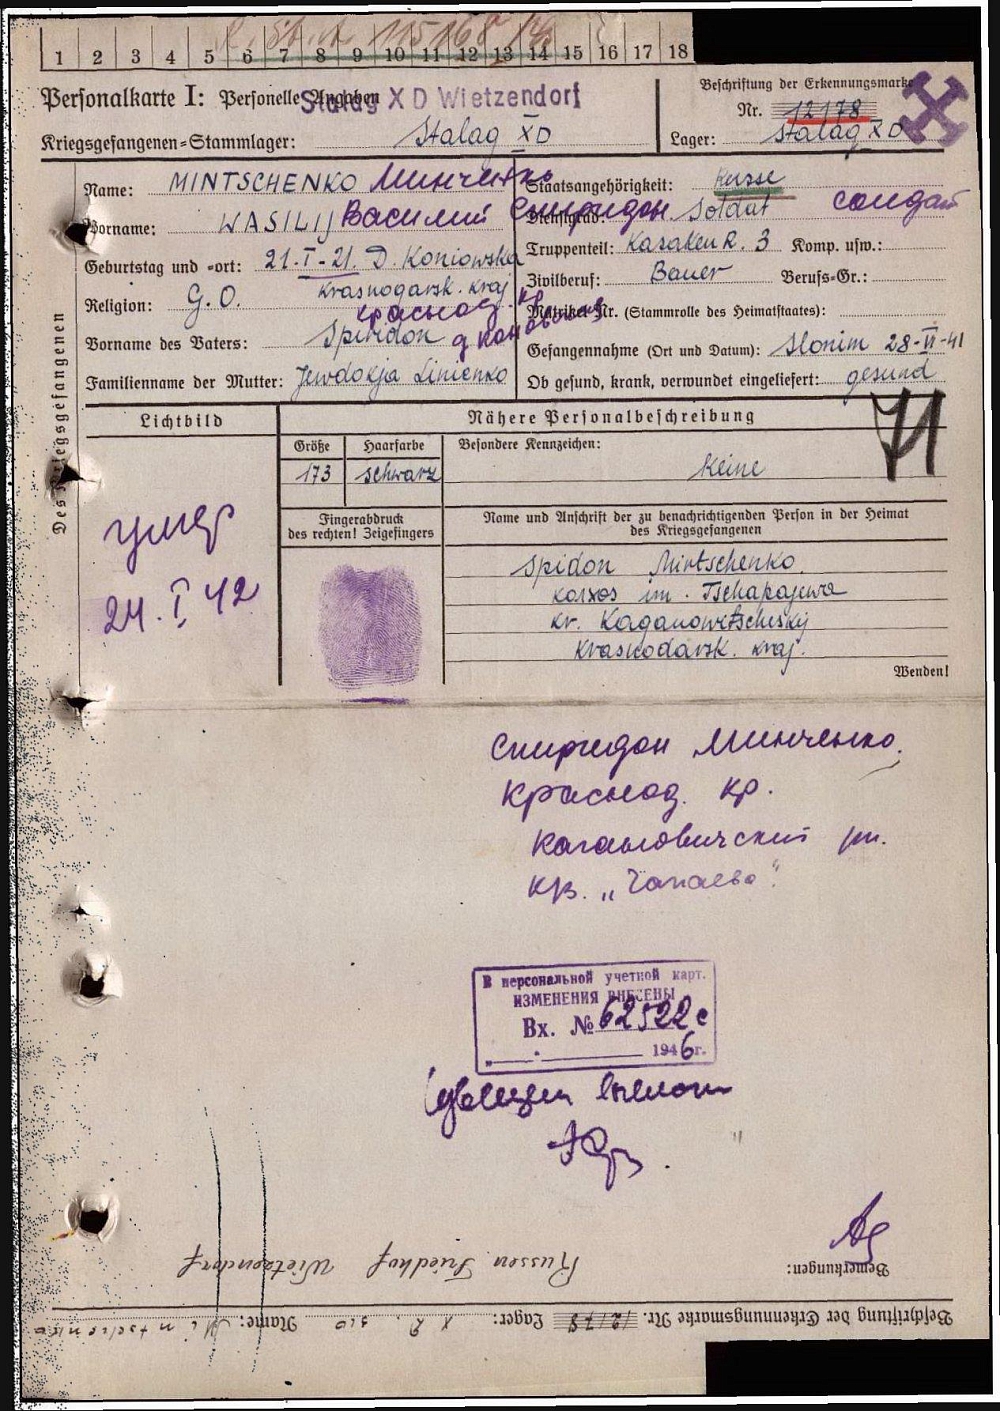 1 2 3 4 5 6 7 8 9 10 11 12 13 14 15 16 17 18
Personalkarte I: Personelle Angaben
Stalag X D Wietzendorf
Kriegsgefangenen-Stammlager: Stalag XD
Beschriftung der Erkennungsmarke
Nr. 12178
Lager: Stalag XD
Des Kriegsgefangenen
Name: MINTSCHENKO Минченко
Vorname: WASILIJ Василий Спиридон.
Geburtstag und -ort: 21.I-21. D. Koniowska
Krasnogarsk. Kraj
Religion: G.O.
Краснод. кр
Vorname des Vaters: Spiridon
Familienname der Mutter: Jewdokja Linienko
Staatsangehörigkeit: Russe
Dienstgrad: Soldat солдат
Truppenteil: Kasaken R. 3 Komp. usw.:
Zivilberuf: Bauer Berufs-Gr.:
Matrikel Nr. (Stammrolle des Heimatstaates):
Gefangennahme (Ort und Datum): Slonim 28-VI-41
Ob gesund, krank, verwundet eingeliefert: gesund
Lichtbild
Nähere Personalbeschreibung
Größe Haarfarbe Besondere Kennzeichen:
173 schwarz Keine
Fingerabdruck
des rechten! Zeigefingers
Name und Anschrift der zu benachrichtigenden Person in der Heimat
des Kriegsgefangenen
умер
24. I 42
Spidon Mintschenko
kolxos im. Tschapajewa
kr. Kaganowitscheskij
Krasnodarsk. kraj.
Wenden!
Спиридон Минченко.
Краснод. кр.
Кагановический рн.
кз. „Чапаева"
В персональной учетной карт.
ИЗМЕНЕНИЯ ВНЕСЕНЫ
Вх. № 62522с
1946г.
Bemerkungen:
Russen Friedhof Wietzendorf
Beschriftung der Erkennungsmarke Nr. 12178 Lager: X D 310 Name: Mintschenko